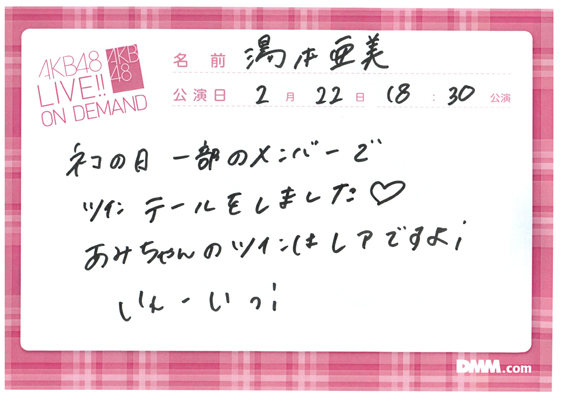 AKB48
LIVE!!
ON DEMAND
AKB
48
名前 湯本亜美
公演日 2月22日 18:30公演
ネコの日 一部のメンバーで
ツインテールをしました♡
あみちゃんのツインはレアですよ!
いえーいっ!
DMM.com